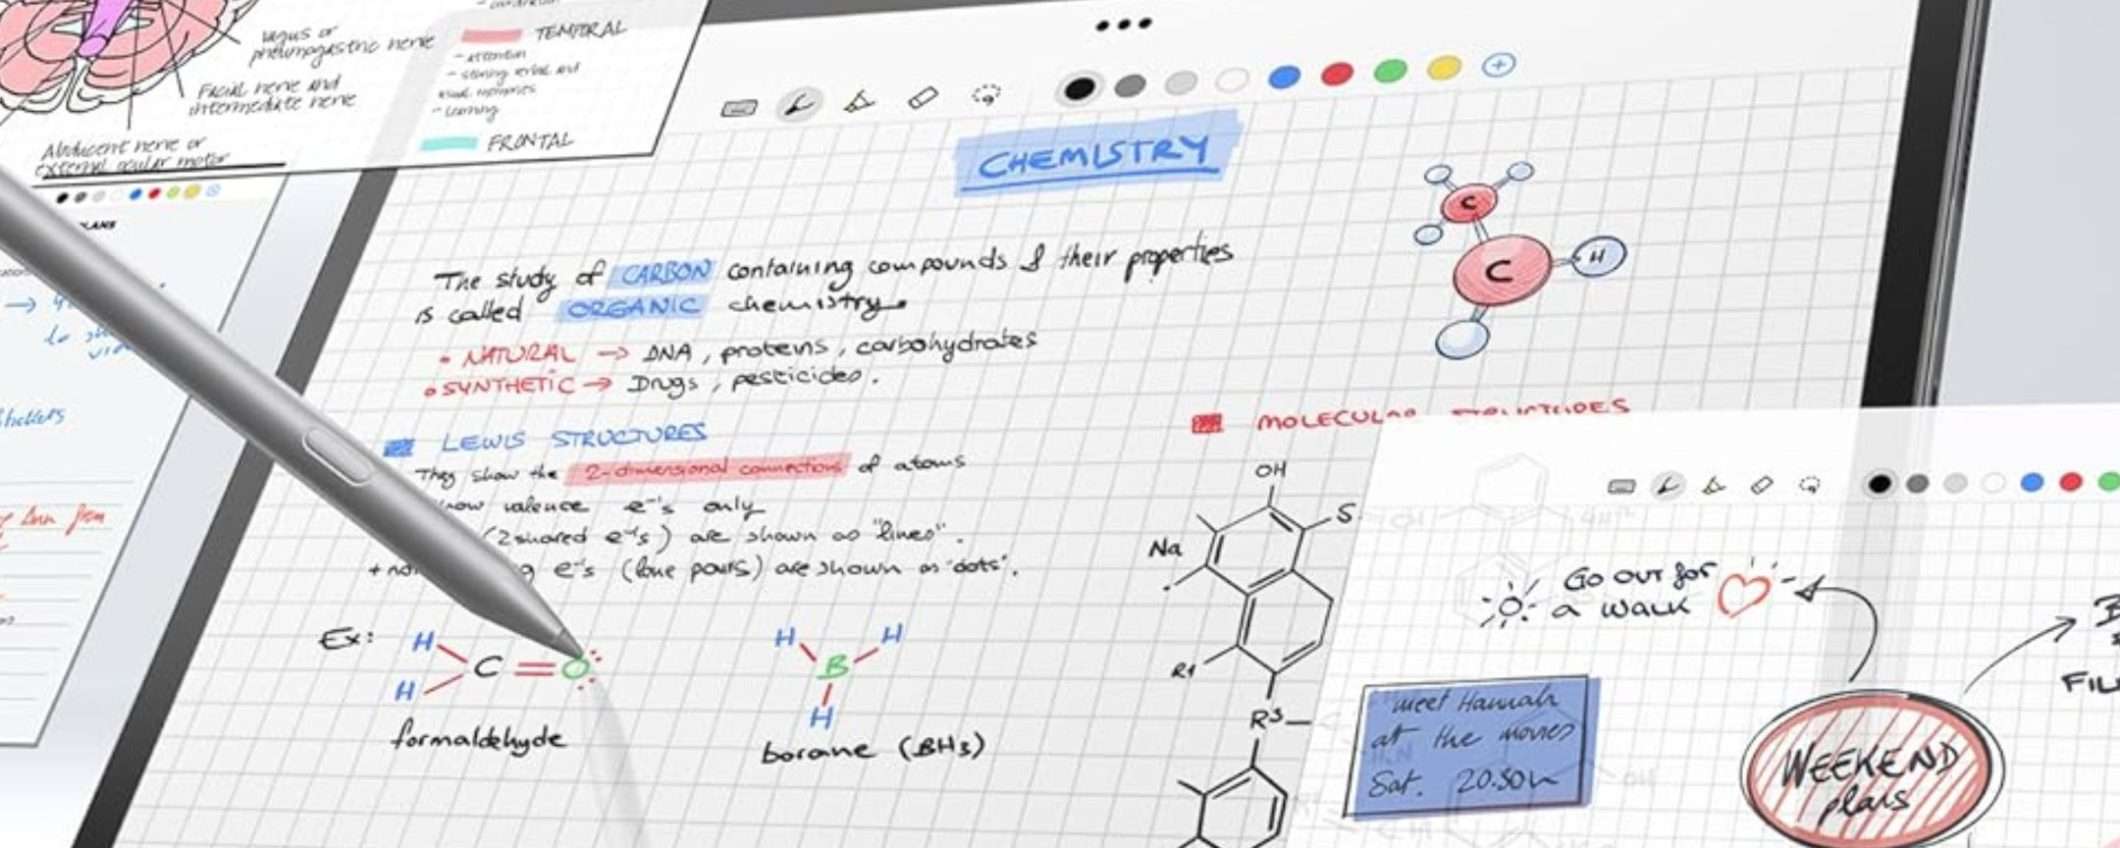 vagus or
pneumogastric nerve
Facial nerve and
intermediate nerve
Abducent nerve or
external ocular motor
TEMPORAL
- attention
- storing verbal and
visual memories
- learning
FRONTAL
LANS
stickers
CHEMISTRY
The study of CARBON containing compounds & their properties
is called ORGANIC chemistry.
• NATURAL → DNA, proteins, carbohydrates
• SYNTHETIC → Drugs, pesticides.
C
C
H
LEWIS STRUCTURES
They show the 2-dimensional connections of atoms
how valence e⁻'s only
(2 shared e⁻'s) are shown as "lines".
+ no g e⁻'s (lone pairs) are shown as "dots".
Ex:
H
H
C
O
formaldehyde
H
H
B
H
borane (BH3)
MOLECULAR STRUCTURES
OH
S
Na
R1
R3
Go out for
a walk
meet Hannah
at the movies
Sat. 20.30h
WEEKEND
plans
B
FIL